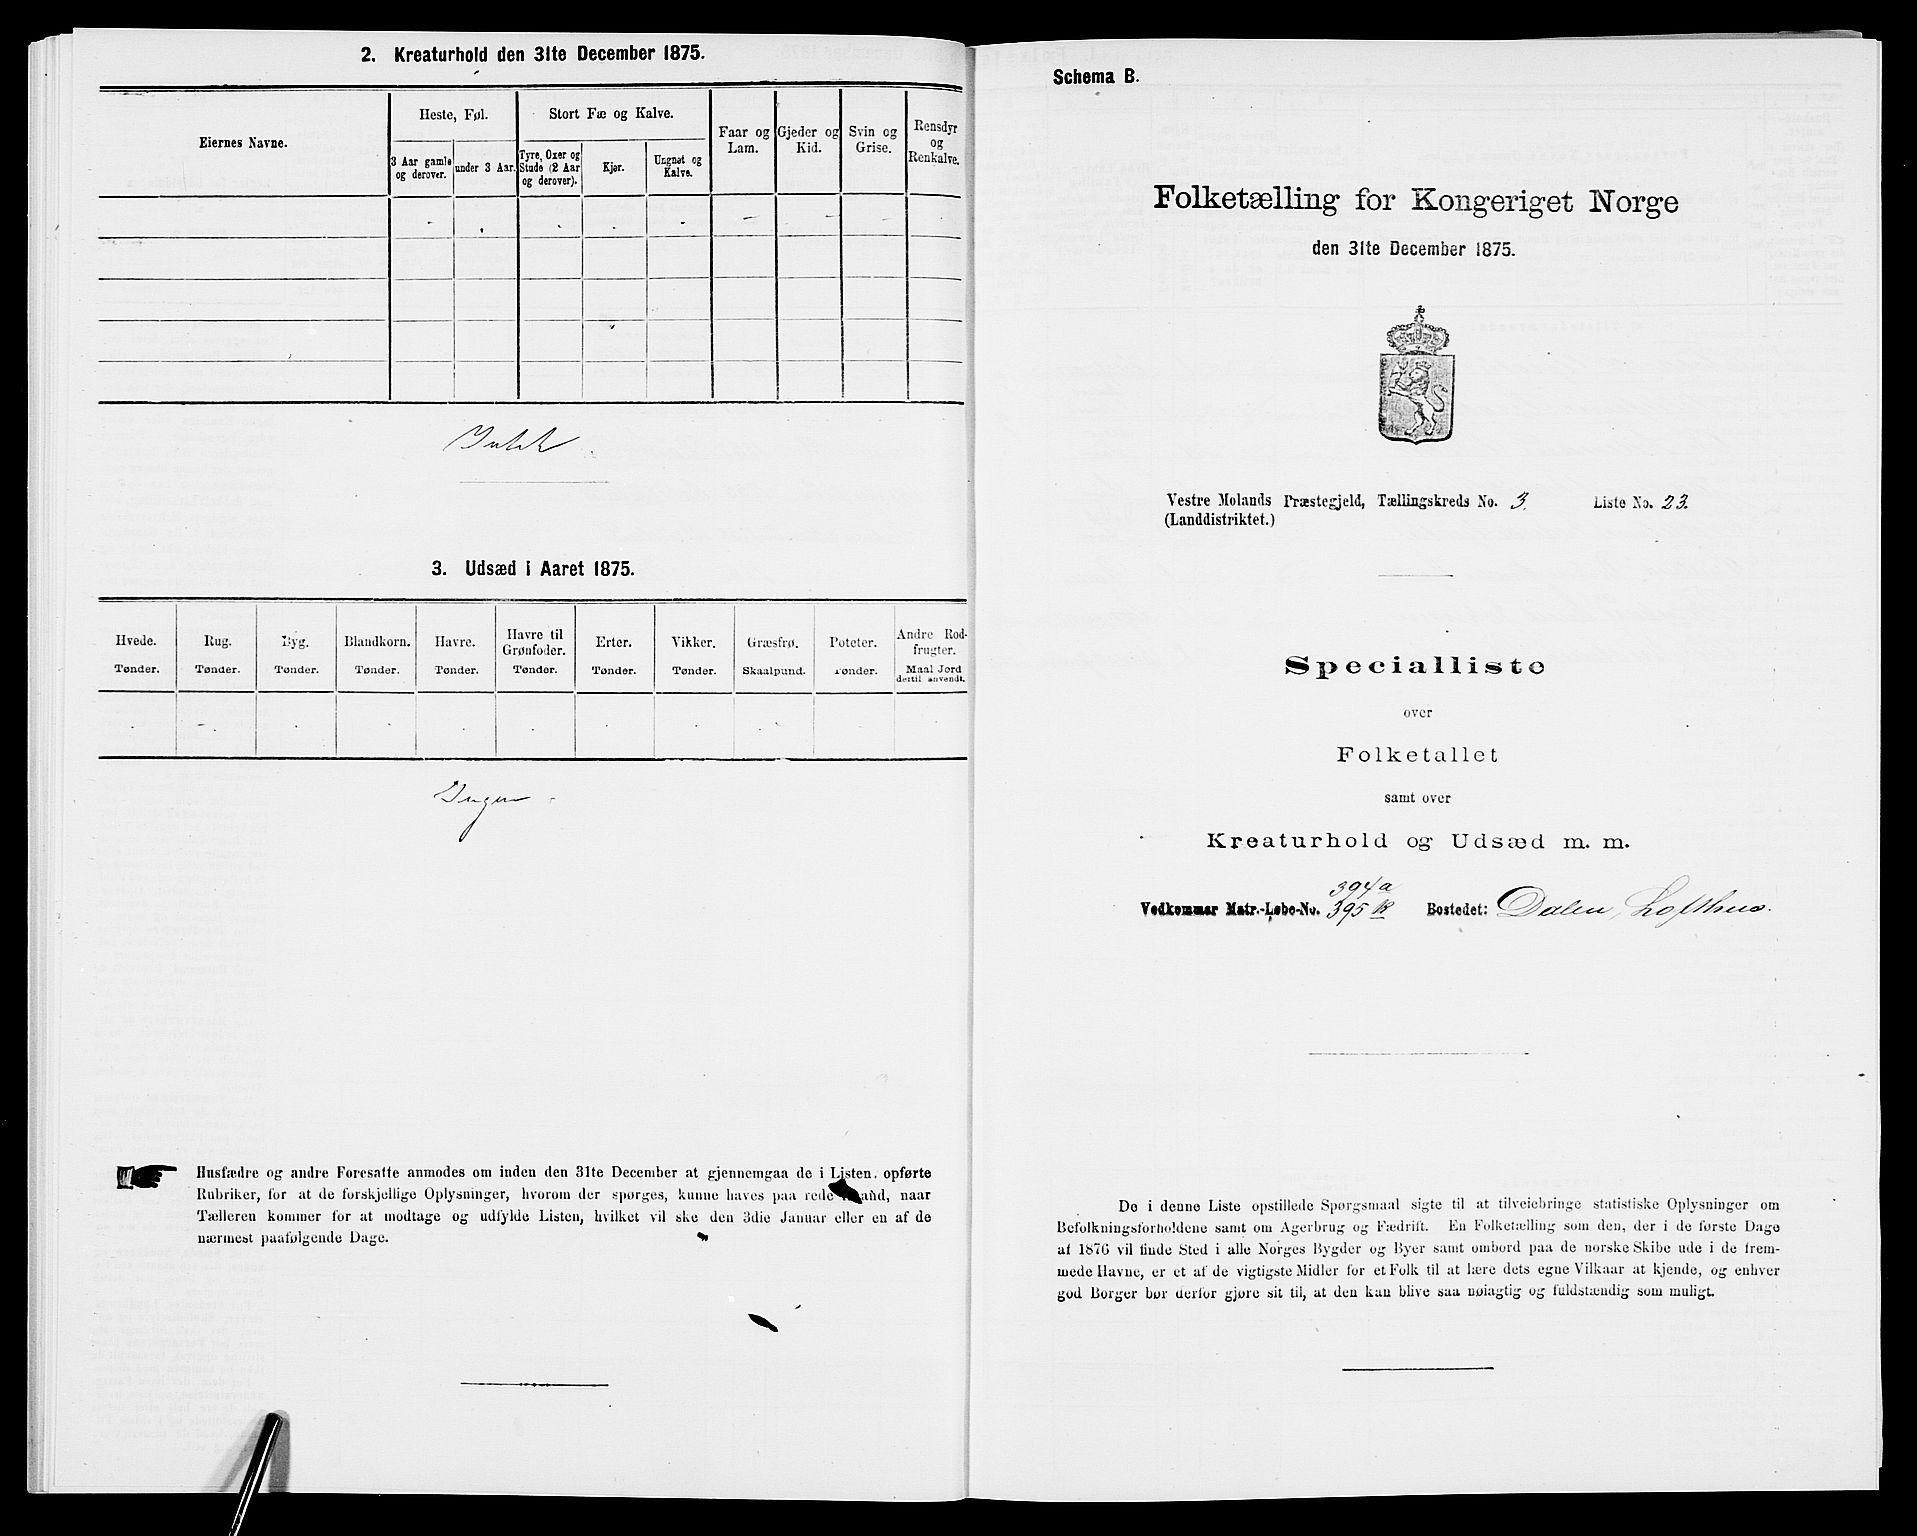 2. Kreaturhold den 31te December 1875.
Eiernes Navne.
Heste, Føl.
Stort Fæ og Kalve.
Faar og
Lam.
Gjeder og
Kid.
Svin og
Grise.
Rensdyr
og
Renkalve.
3 Aar gamle
og derover.
under 3 Aar.
Tyre, Oxer og
Stude (2 Aar
og derover).
Kjør.
Ungnøt og
Kalve.
3. Udsæd i Aaret 1875.
Hvede.
Tønder.
Rug.
Tønder.
Byg.
Tønder.
Blandkorn.
Tønder.
Havre.
Tønder.
Havre til
Grønfoder.
Tønder.
Erter.
Tønder.
Vikker.
Tønder.
Græsfrø.
Skaalpund.
Poteter.
Tønder.
Andre Rod-
frugter.
Maal Jord
dertil anvendt.
Ingen
Husfædre og andre Foresatte anmodes om inden den 31te December at gjennemgaa de i Listen opførte
Rubriker, for at de forskjellige Oplysninger, hvorom der spørges, kunne haves paa rede Haand, naar
Tælleren kommer for at modtage og udfylde Listen, hvilket vil ske den 3die Januar eller en af de
nærmest paafølgende Dage.
Schema B.
Folketælling for Kongeriget Norge
den 31te December 1875.
Vestre Molands Præstegjeld, Tællingskreds No. 3. Liste No. 23.
(Landdistriktet.)
Specialliste
over
Folketallet
samt over
Kreaturhold og Udsæd m. m.
394 a
Vedkommer Matr.-Løbe-No. 395 Bostedet: Dalen, Lofthus.
De i denne Liste opstillede Spørgsmaal sigte til at tilveiebringe statistiske Oplysninger om
Befolkningsforholdene samt om Agerbrug og Fædrift. En Folketælling som den, der i de første Dage
af 1876 vil finde Sted i alle Norges Bygder og Byer samt ombord paa de norske Skibe ude i de frem-
mede Havne, er et af de vigtigste Midler for et Folk til at lære dets egne Vilkaar at kjende, og enhver
god Borger bør derfor gjøre sit til, at den kan blive saa nøiagtig og fuldstændig som muligt.